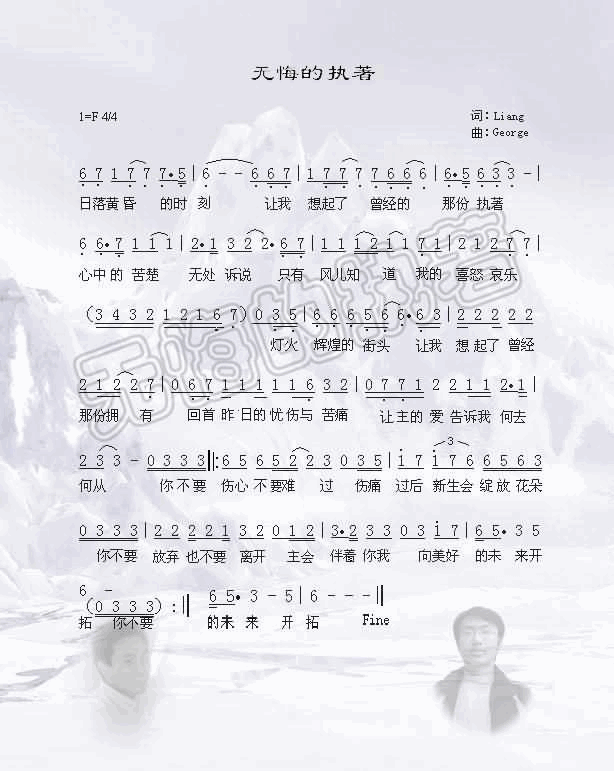 无悔的执著
1=F 4/4
词：Liang
曲：George
6 7 1 7 7 7• 5 | 6 - - 6 6 7 | 1 7 7 7 7 6 6 6 | 6• 5 6 3 3 - |
日落黄昏 的时 刻 让我 想起了 曾经的 那份 执著
6 6• 7 1 1 1 | 2• 1 3 2 2 2• 6 7 | 1 1 1 2 1 1 7 1 | 2 1 2 7 7 |
心中的 苦楚 无处 诉说 只有 风儿知 道 我的 喜怒 哀乐
(3 4 3 2 1 2 1 6 7) 0 3 5 | 6 6 6 6 5 6 6• 6 3 | 2 2 2 2 2
灯火 辉煌的 街头 让我 想起了 曾经
2 1 2 2 7 | 0 6 7 1 1 1 1 1 6 3 2 | 0 7 7 1 2 2 1 1 2• 1 |
那份拥 有 回首 昨日的忧伤与 苦痛 让主的 爱告诉我 何去
2 3 3 - 0 3 3 3 ‖: 6 5 6 5 2 2 3 0 3 5 | 1 7 1 7 6 6 5 6 3
3
何从 你不要 伤心 不要难 过 伤痛 过后 新生会 绽放 花朵
0 3 3 3 | 2 2 2 2 1 3 2 0 1 2 | 3• 2 3 3 0 3 1 7 | 6 5• 3 5
你不要 放弃 也不要 离开 主会 伴着 你我 向美好 的未 来开
6 -
(0 3 3 3) :‖ 6 5• 3 - 5 | 6 - - - ‖
拓 你不要 的未 来 开 拓 Fine
无悔的执著